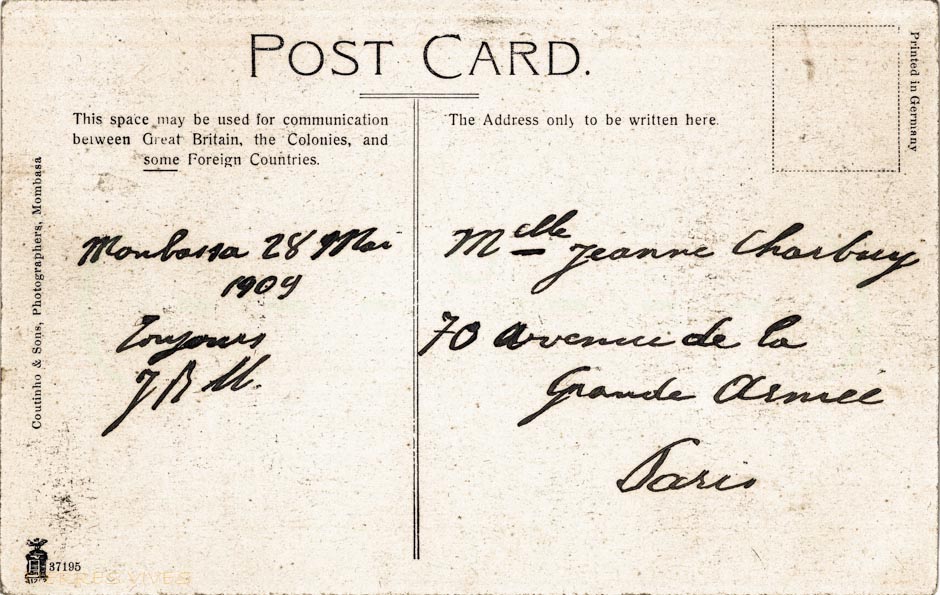 POST CARD.
This space may be used for communication
between Great Britain, the Colonies, and
some Foreign Countries.
The Address only to be written here.
Printed in Germany
Coutinho & Sons, Photographers, Mombasa
Monbassa 28 Mai
1909
Toujours
J B M.
Melle Jeanne Charbuy
70 avenue de la
Grande Armee
Paris
37195